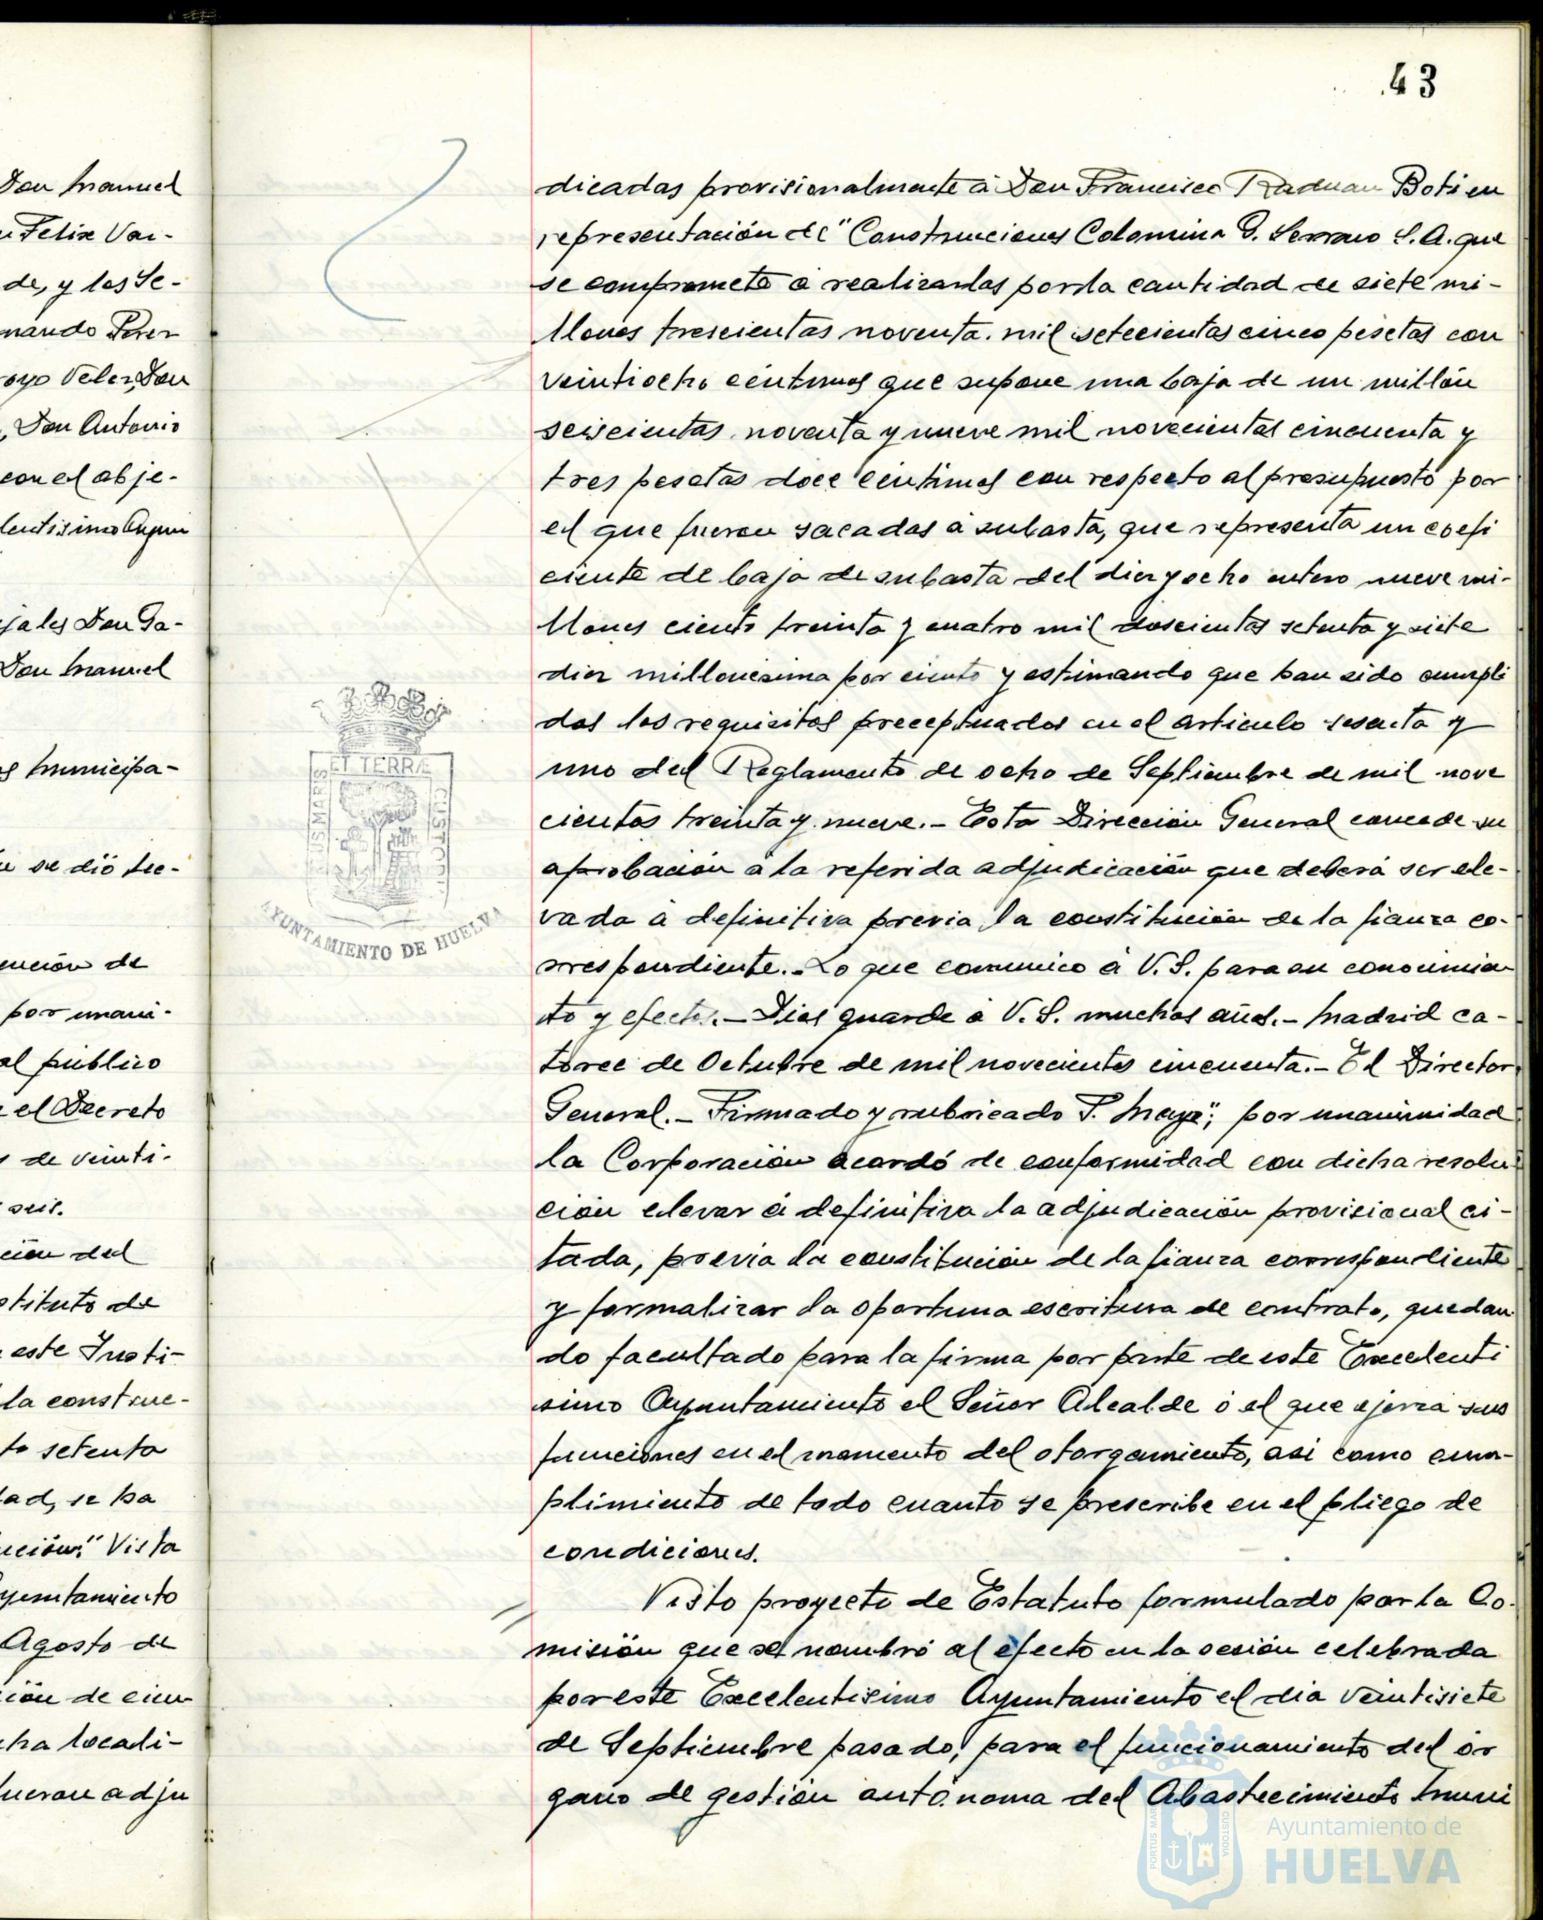 43
Don Manuel
Felix Vaz-
de, y los Se-
nando Perez
oyo Velez, Don
, Don Antonio
con el obje-
lentisimo Ayun
jales Don Ga-
Don Manuel
Municipa-
se dió lec-
ención de
por unani-
al público
el Decreto
de veinti-
seis.
ción del
stituto de
este Insti-
la construc-
to setenta
dad, se ha
ución." Vista
yuntamiento
Agosto de
ión de cien
cha locali-
fueron adju
dicadas provisionalmente á Don Francisco Raduan Boti en
representación de "Construcciones Colomina G. Serrano S.A. que
se compromete á realizarlas por la cantidad de siete mi-
llones trescientas noventa mil setecientas cinco pesetas con
veintiocho céntimos que supone una baja de un millón
seiscientas noventa y nueve mil novecientas cincuenta y
tres pesetas doce céntimos con respecto al presupuesto por
el que fueron sacadas á subasta, que representa un coefi
ciente de baja de subasta del diez y ocho entero nueve mi-
llones ciento treinta y cuatro mil doscientas setenta y siete
diez millonesima por ciento y estimando que han sido cumpli
dos los requisitos preceptuados en el articulo sesenta y
uno del Reglamento de ocho de Septiembre de mil nove
cientos treinta y nueve.- Esta Dirección General concede su
aprobación a la referida adjudicación que deberá ser ele-
vada á definitiva previa la constitución de la fianza co-
rrespondiente.- Lo que comunico á V.S. para su conocimien
to y efectos.- Dios guarde á V.S. muchos años.- Madrid ca-
torce de Octubre de mil novecientos cincuenta.- El Director
General.- Firmado y rubricado F. Mayo"; por unanimidad
la Corporación acordó de conformidad con dicha resolu-
ción elevar á definitiva la adjudicación provisional ci-
tada, previa la constitución de la fianza correspondiente
y formalizar la oportuna escritura de contrato, quedan
do facultado para la firma por parte de este Excelenti
simo Ayuntamiento el Señor Alcalde ó el que ejerza sus
funciones en el momento del otorgamiento, asi como cum-
plimiento de todo cuanto se prescribe en el pliego de
condiciones.
Visto proyecto de Estatuto formulado por la Co-
misión que se nombró al efecto en la sesión celebrada
por este Excelentisimo Ayuntamiento el dia veintisiete
de Septiembre pasado, para el funcionamiento del ór
gano de gestión autónoma del Abastecimiento Muni
ET TERRÆ
CUSTODI
AYUNTAMIENTO DE HUELVA
PORTUS MARIS
CUSTODIA
Ayuntamiento de
HUELVA